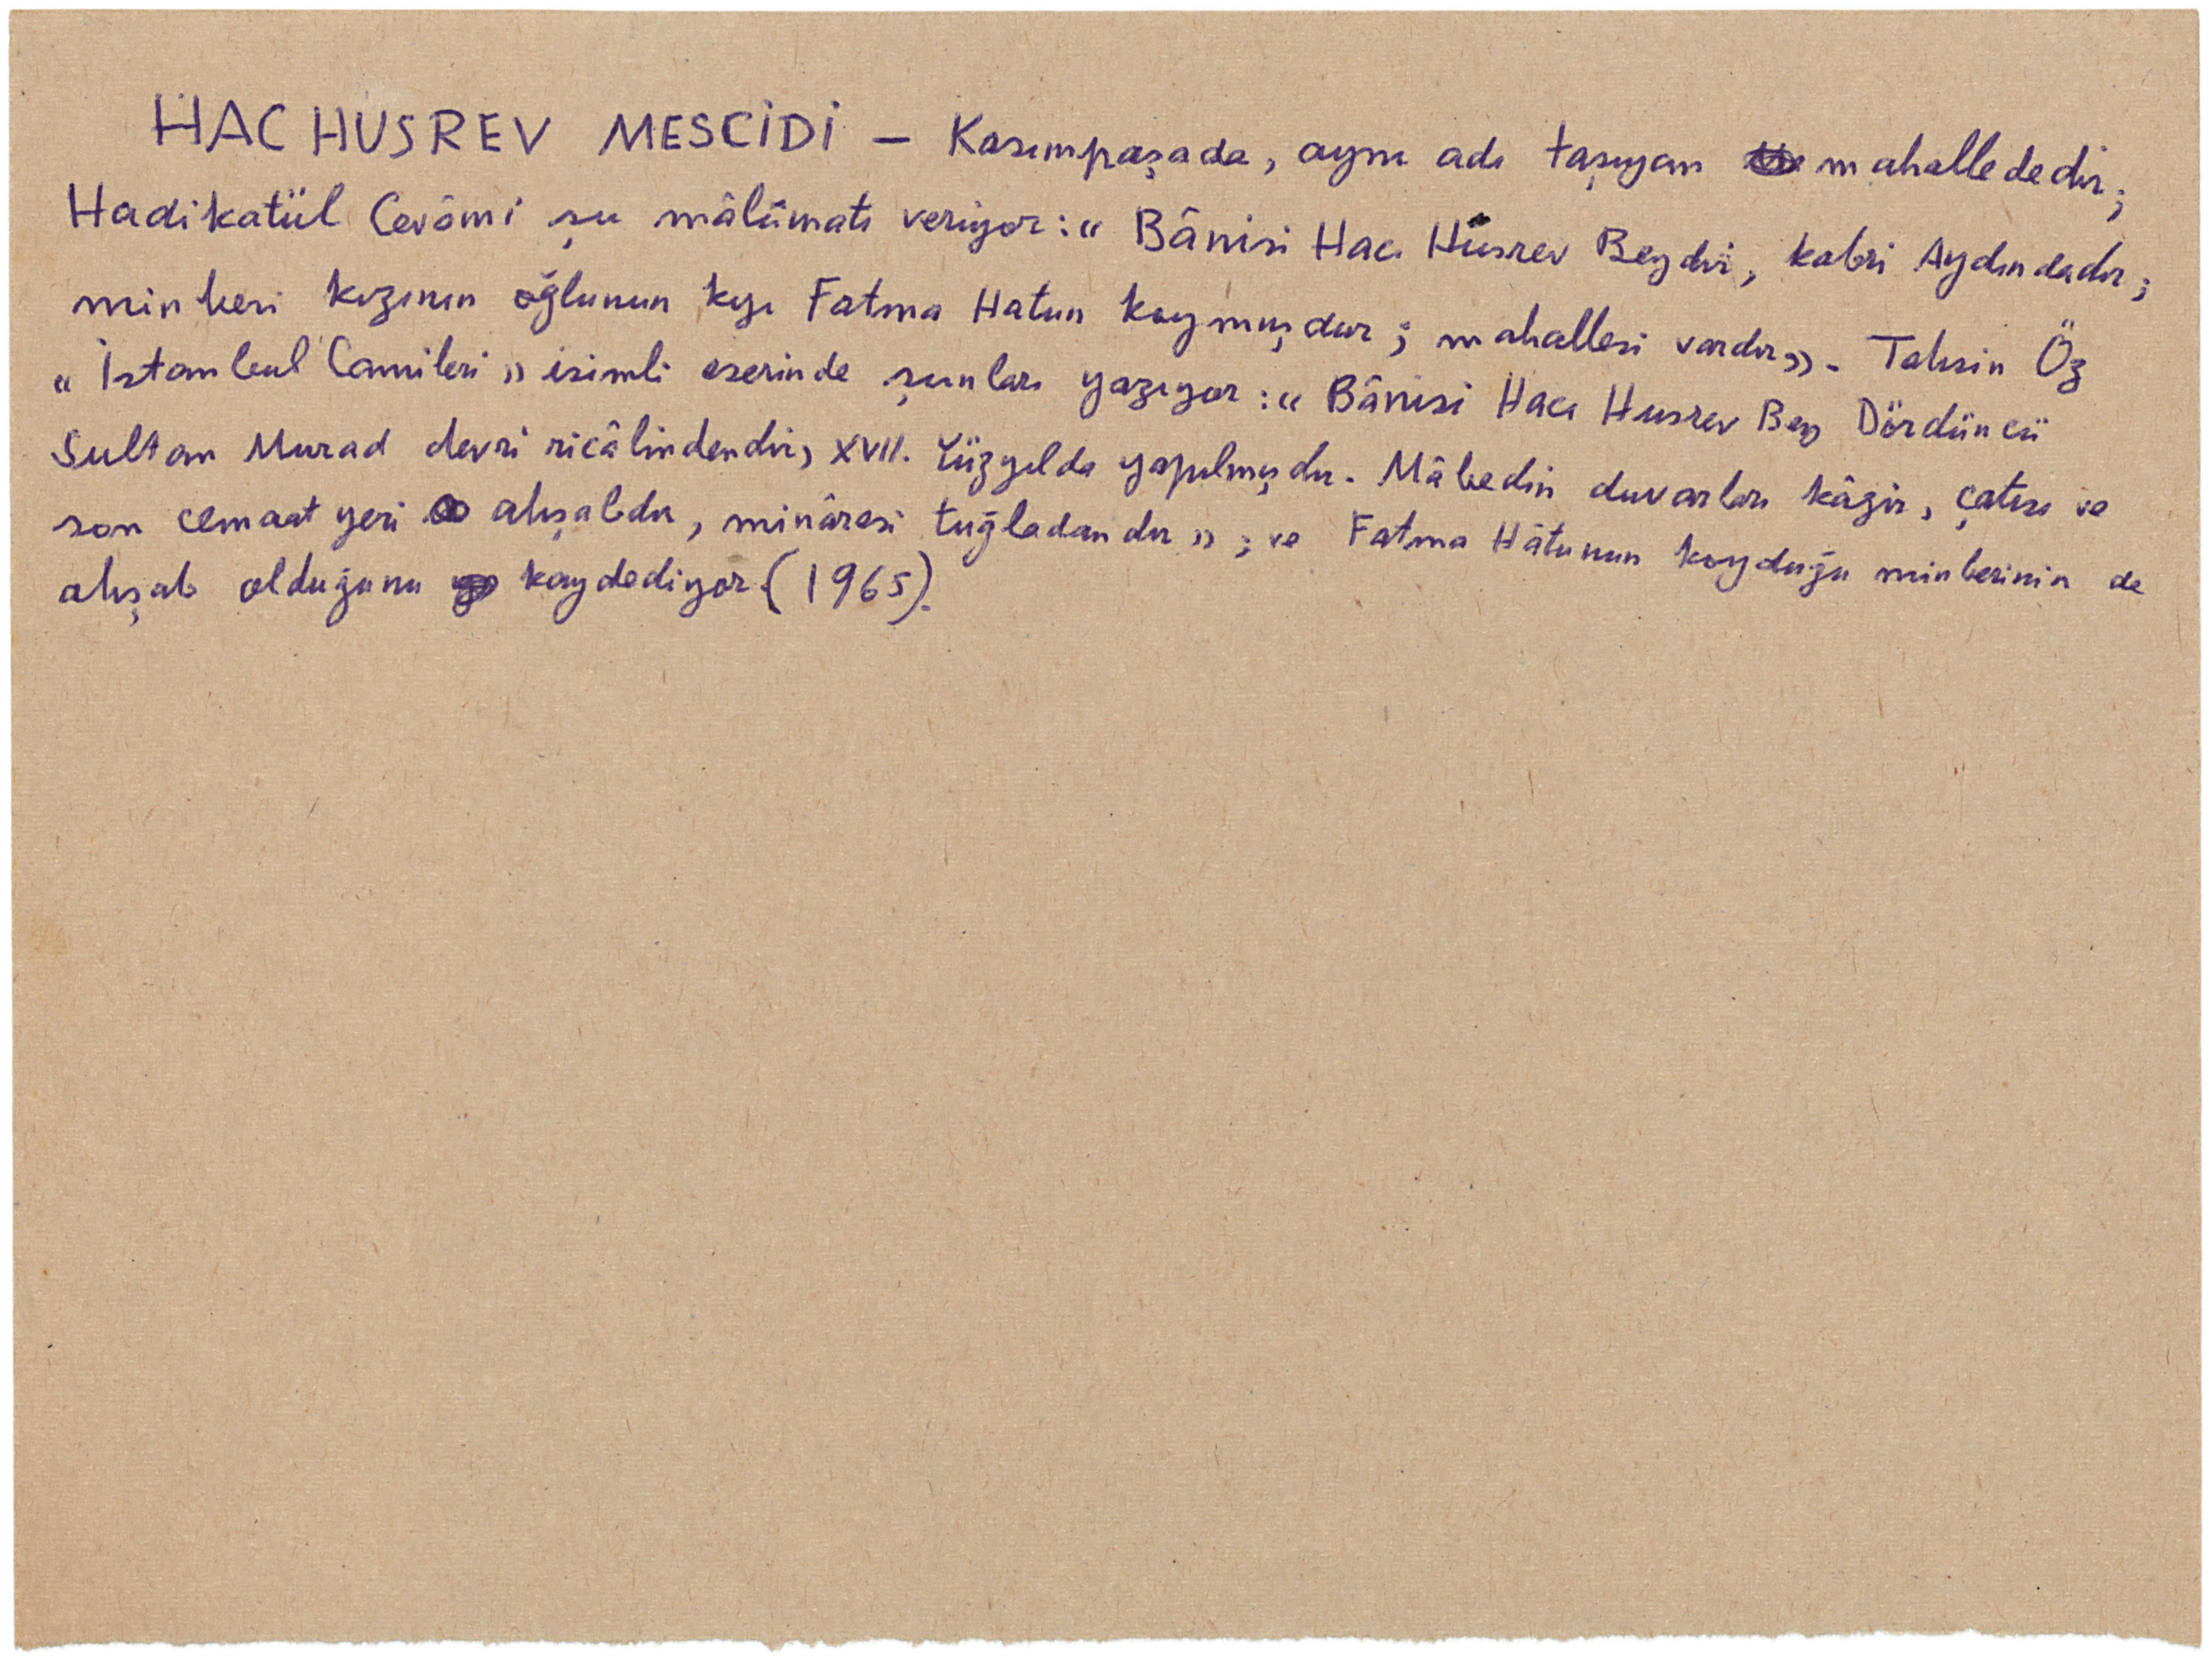 HAC HUSREV MESCİDİ — Kasımpaşada, aynı adı taşıyan mahallededir;
Hadikatül Cevâmi şu mâlûmatı veriyor: « Bânisi Hacı Hüsrev Beydir, kabri Aydındadır;
minberi kızının oğlunun kızı Fatma Hatun koymuşdur; mahallesi vardır ». Tahsin Öz
« İstanbul Camileri » isimli eserinde şunları yazıyor: « Bânisi Hacı Husrev Bey Dördüncü
Sultan Murad devri ricâlindendir, XVII. Yüzyılda yapılmışdır. Mâbedin duvarları kâgir, çatısı ve
son cemaat yeri ahşabdır, minâresi tuğladandır » ; ve Fatma Hâtunun koyduğu minberinin de
ahşab olduğunu kaydediyor (1965).